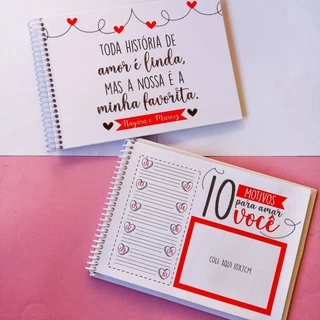 TODA HISTÓRIA DE
amor é linda,
MAS A NOSSA É A
minha favorita.
Nayara e Marcos
10 MOTIVOS
para amar
você
COLE AQUI 10X7CM